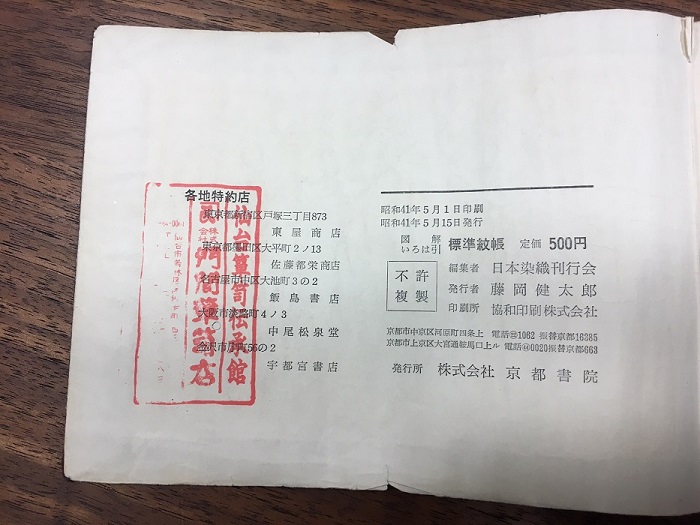 昭和41年5月1日印刷
昭和41年5月15日発行
図解
いろは引
標準紋帳 定価 500円
不許
複製
編集者 日本染織刊行会
発行者 藤岡健太郎
印刷所 協和印刷株式会社
京都市中京区河原町四条上 電話㉒1062 振替京都16385
京都市上京区大宮通鞍馬口上ル 電話㊹0020振替京都663
発行所 株式会社 京都書院
各地特約店
東京都新宿区戸塚三丁目873
東屋商店
東京都墨田区太平町2ノ13
佐藤都栄商店
名古屋市中区大池町3の2
飯島書店
大阪市淡路町4ノ3
中尾松泉堂
金沢市片町56の2
宇都宮書店
仙台簞笥伝承館
株式
会社
門間簞笥店